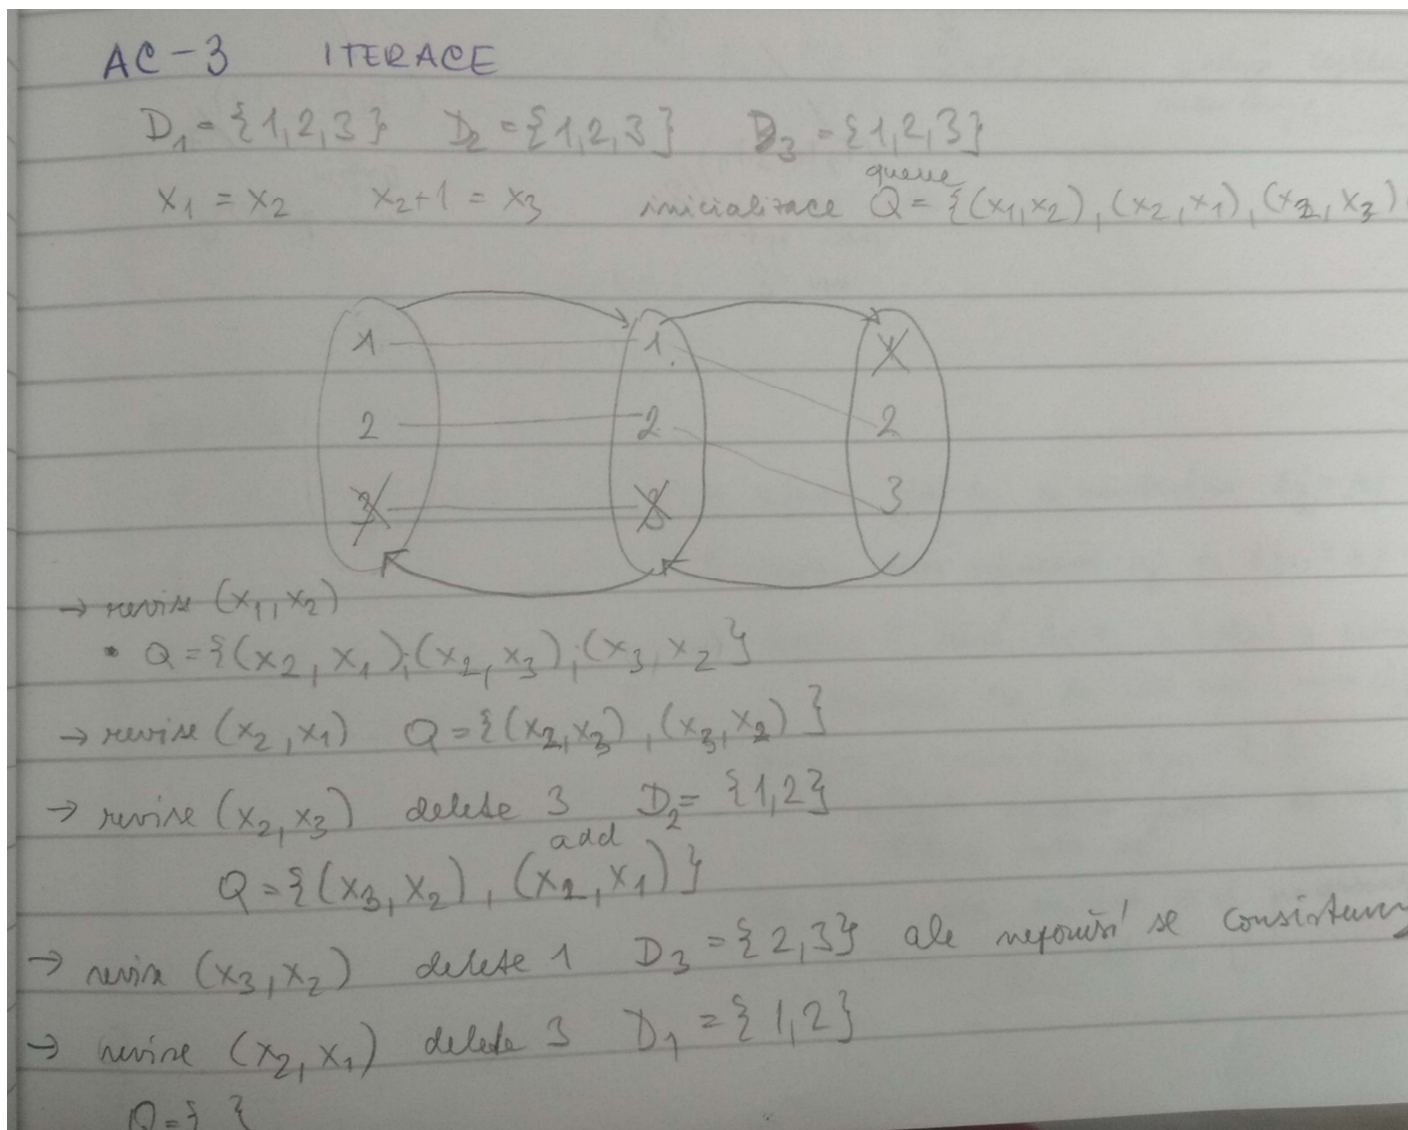 AC-3 ITERACE
D₁ = {1,2,3} D₂ = {1,2,3} D₃ = {1,2,3}
queue
x₁ = x₂ x₂+1 = x₃ inicializace Q = {(x₁,x₂), (x₂,x₁), (x₂,x₃)
1 1 1
2 2 2
3 3 3
→ revise (x₁,x₂)
• Q = {(x₂,x₁);(x₂,x₃);(x₃,x₂}
→ revise (x₂,x₁) Q = {(x₂,x₃), (x₃,x₂)}
→ revise (x₂,x₃) delete 3 D₂ = {1,2}
add
Q = {(x₃,x₂), (x₂,x₁)}
→ revise (x₃,x₂) delete 1 D₃ = {2,3} ale neporuší se consistency
→ revise (x₂,x₁) delete 3 D₁ = {1,2}
Q = { }